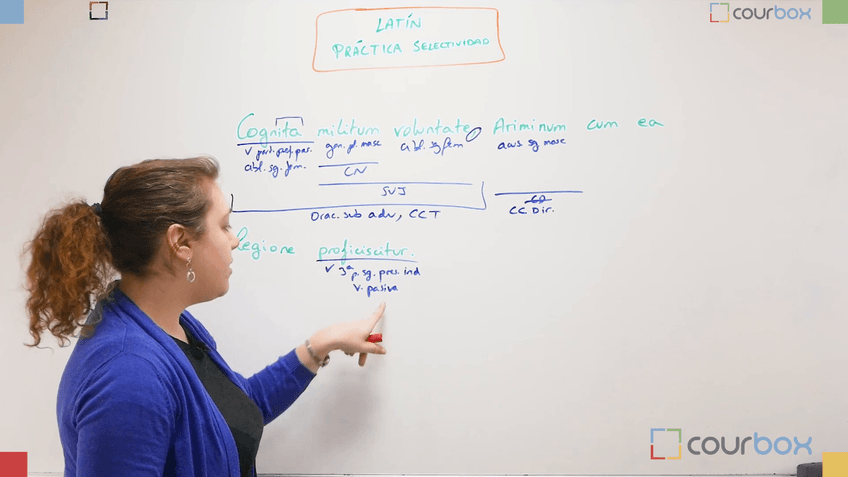 courbox
LATÍN
PRÁCTICA SELECTIVIDAD
Cognita militum voluntate, Ariminum cum ea
v part. perf. pas. gen. pl. masc abl. sg fem acus sg masc
abl. sg. fem.
CN
SUJ
CD
Orac. sub adv, CCT CC Dir.
legione proficiscitur.
v 3ª p. sg. pres. ind
v. pasiva
courbox